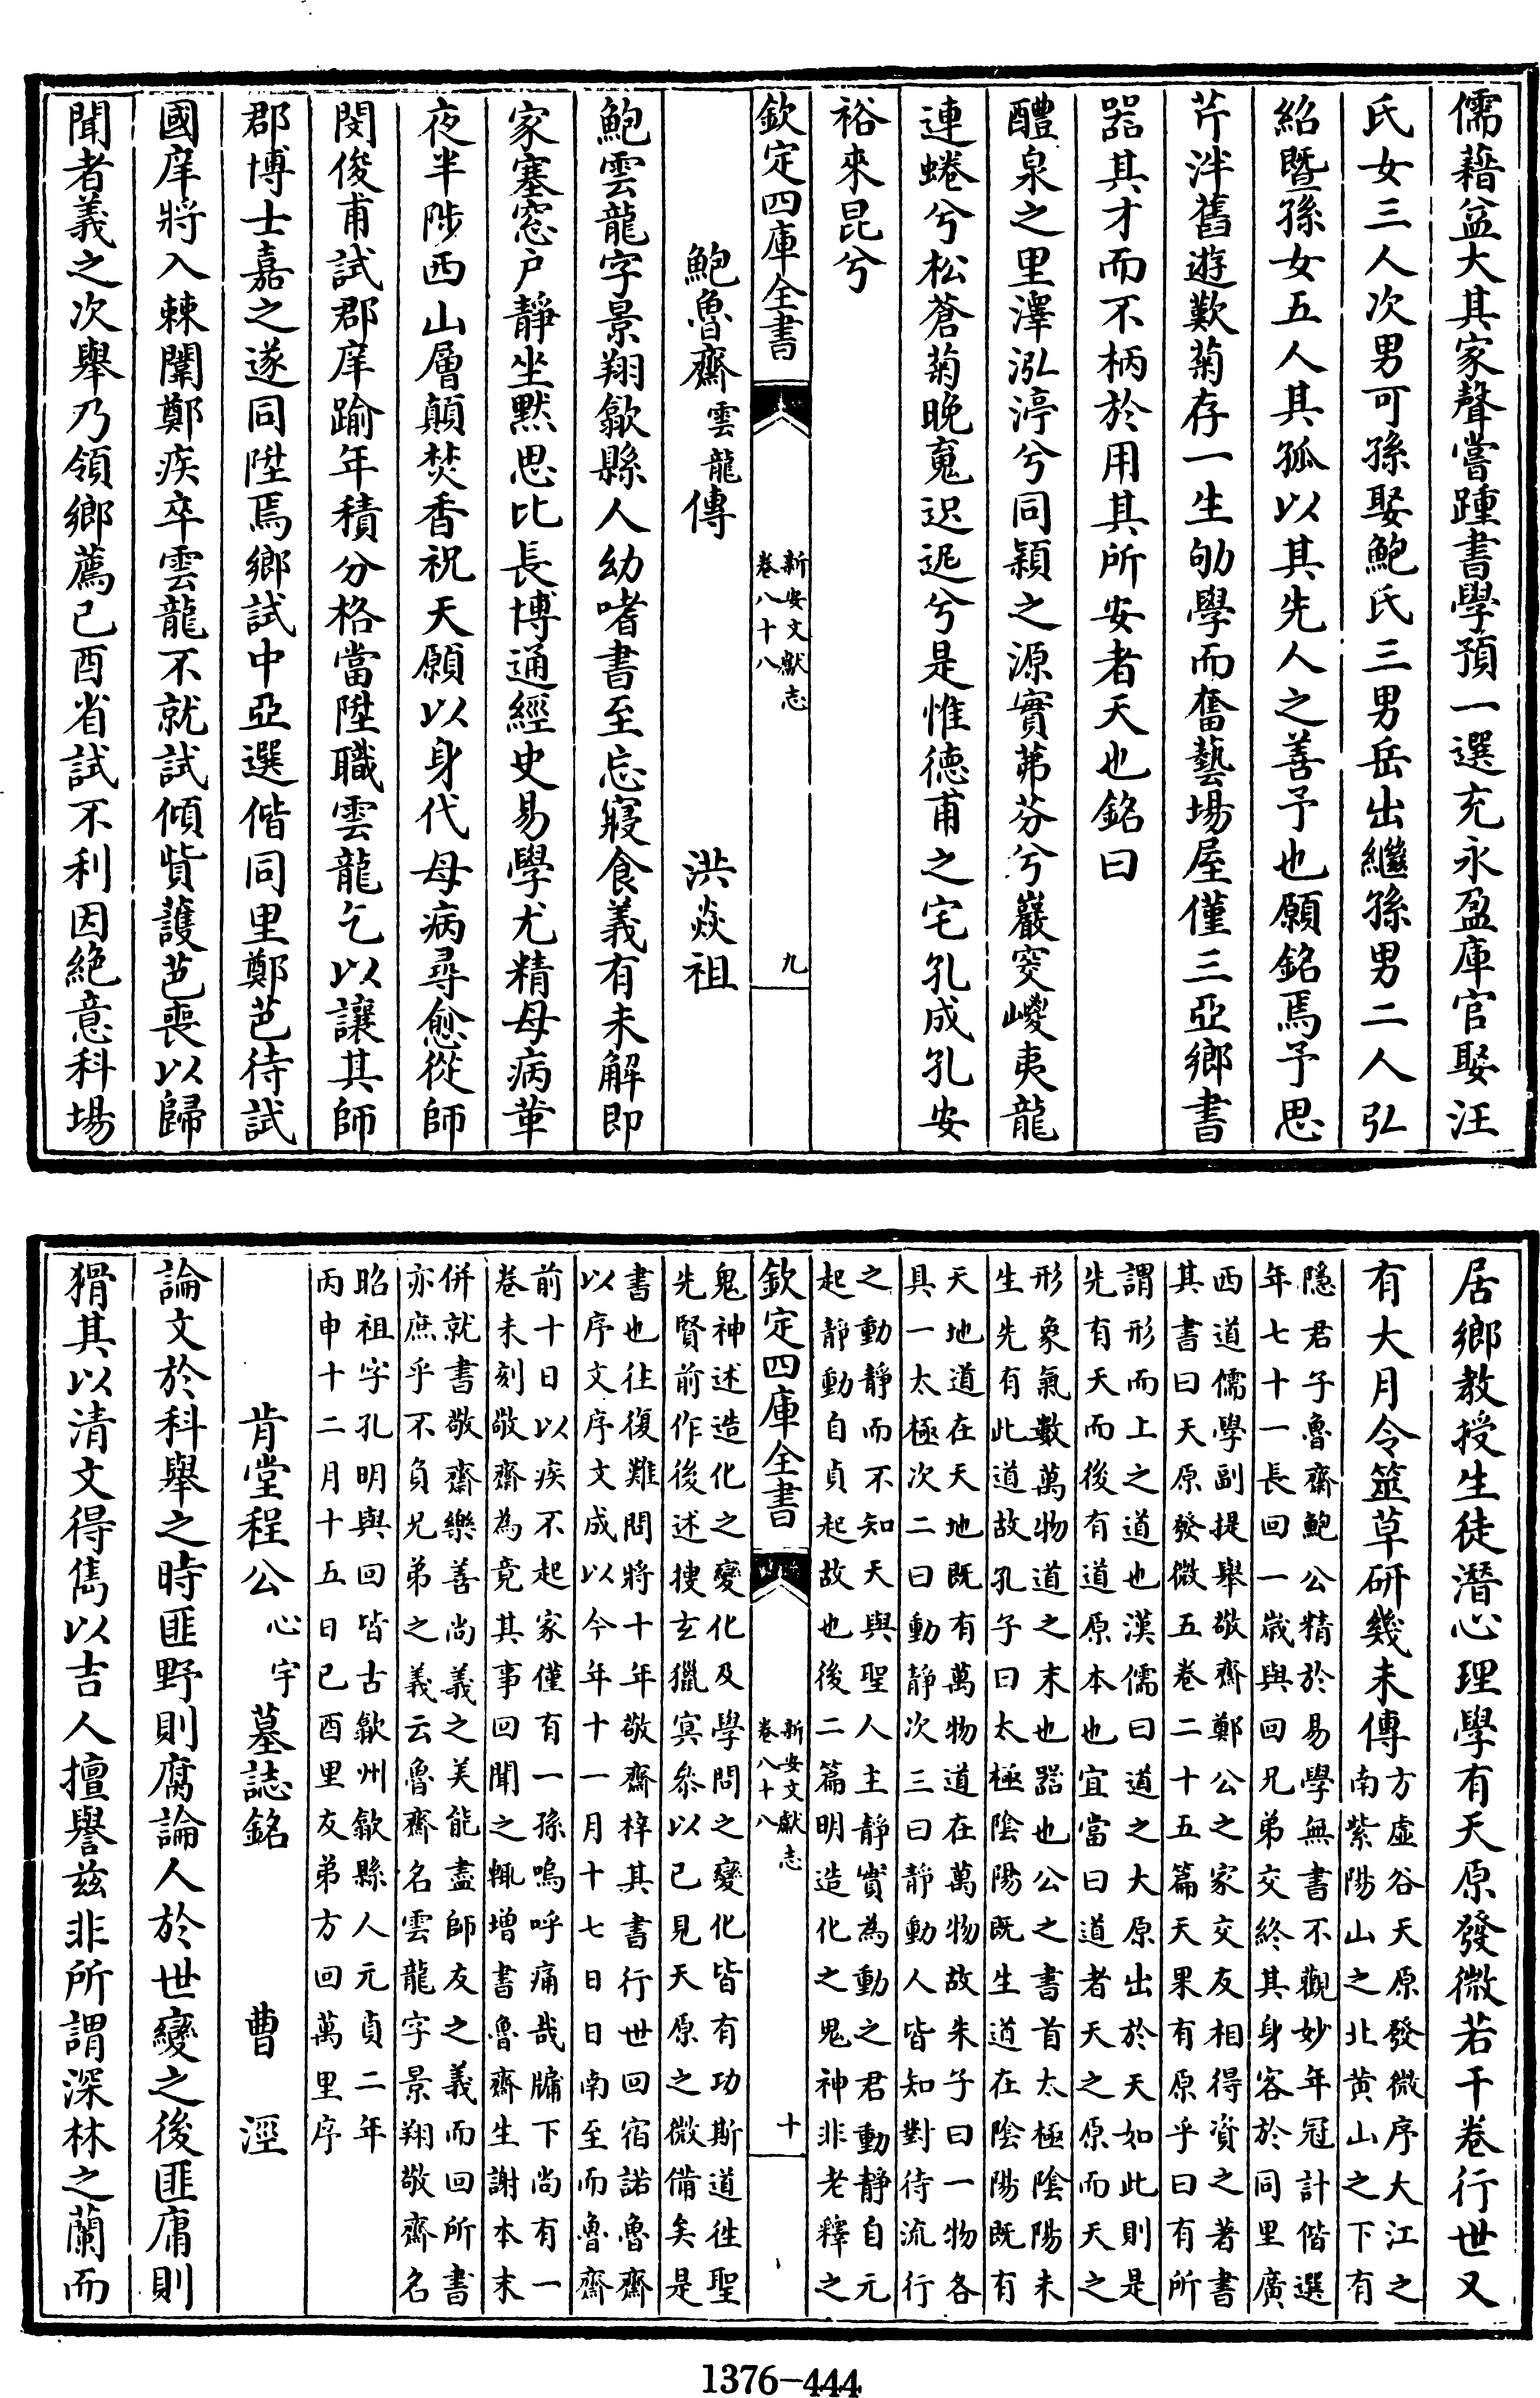 儒藉盆大其家聲嘗踵書學預一選充永盈庫官娶汪
氏女三人次男可孫娶鮑氏三男岳出繼孫男二人弘
紹暨孫女五人其孤以其先人之善予也願銘焉予思
芹泮舊遊歎菊存一生劬學而奮藝場屋僅三亞鄉書
器其才而不柄於用其所安者天也銘曰
醴泉之里澤泓渟兮同潁之源實茀芬兮巖窔巙夷龍
連蜷兮松蒼菊晚寬迟迡兮是惟德甫之宅孔成孔安
裕來昆兮
欽定四庫全書
新安文獻志
卷八十八
九
鮑魯齋雲龍傳 洪焱祖
鮑雲龍字景翔歙縣人幼嗜書至忘寢食義有未解即
家塞窓户靜坐默思比長博通經史易學尤精母病革
夜半陟西山層顛焚香祝天願以身代母病尋愈從師
閔俊甫試郡庠踰年積分格當陞職雲龍乞以讓其師
郡博士嘉之遂同陞焉鄉試中亞選偕同里鄭芭待試
國庠將入棘闈鄭疾卒雲龍不就試傾貲護芭喪以歸
聞者義之次舉乃領鄉薦已酉省試不利因絶意科場
居鄉教授生徒潛心理學有天原發微若干卷行世又
有大月令筮草研幾未傳方虛谷天原發微序大江之
南紫陽山之北黃山之下有
隱君子魯齋鮑公精於易學無書不觀妙年冠計偕選
年七十一長回一嵗與回兄弟交終其身客於同里廣
西道儒學副提舉敬齋鄭公之家交友相得資之著書
其書曰天原發微五卷二十五篇天果有原乎曰有所
謂形而上之道也漢儒曰道之大原出於天如此則是
先有天而後有道原本也宜當曰道者天之原而天之
形象氣數萬物道之末也器也公之書首太極陰陽未
生先有此道故孔子曰太極陰陽既生道在陰陽既有
天地道在天地既有萬物道在萬物故朱子曰一物各
具一太極次二曰動靜次三曰靜動人皆知對待流行
之動靜而不知天與聖人主靜實為動之君動靜自元
起靜動自貞起故也後二篇明造化之鬼神非老釋之
欽定四庫全書
新安文獻志
卷八十八
十
鬼神述造化之變化及學問之變化皆有功斯道徃聖
先賢前作後述搜玄獵冥叅以已見天原之微備矣是
書也往復難問將十年敬齋梓其書行世回宿諾魯齋
以序文序文成以今年十一月十七日日南至而魯齋
前十日以疾不起家僅有一孫嗚呼痛哉牖下尚有一
卷未刻敬齋為竟其事回聞之輒增書魯齋生謝本末
併就書敬齋樂善尚義之美能盡師友之義而回所書
亦庶乎不負兄弟之義云魯齋名雲龍字景翔敬齋名
昭祖字孔明與回皆古歙州歙縣人元貞二年
丙申十二月十五日已酉里友弟方回萬里序
肯堂程公心宇墓誌銘 曹涇
論文於科舉之時匪野則腐論人於世變之後匪庸則
猾其以清文得雋以吉人擅譽兹非所謂深林之蘭而
1376-444